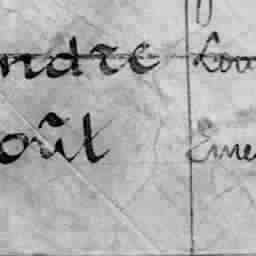 ndre Lou
oût Eme